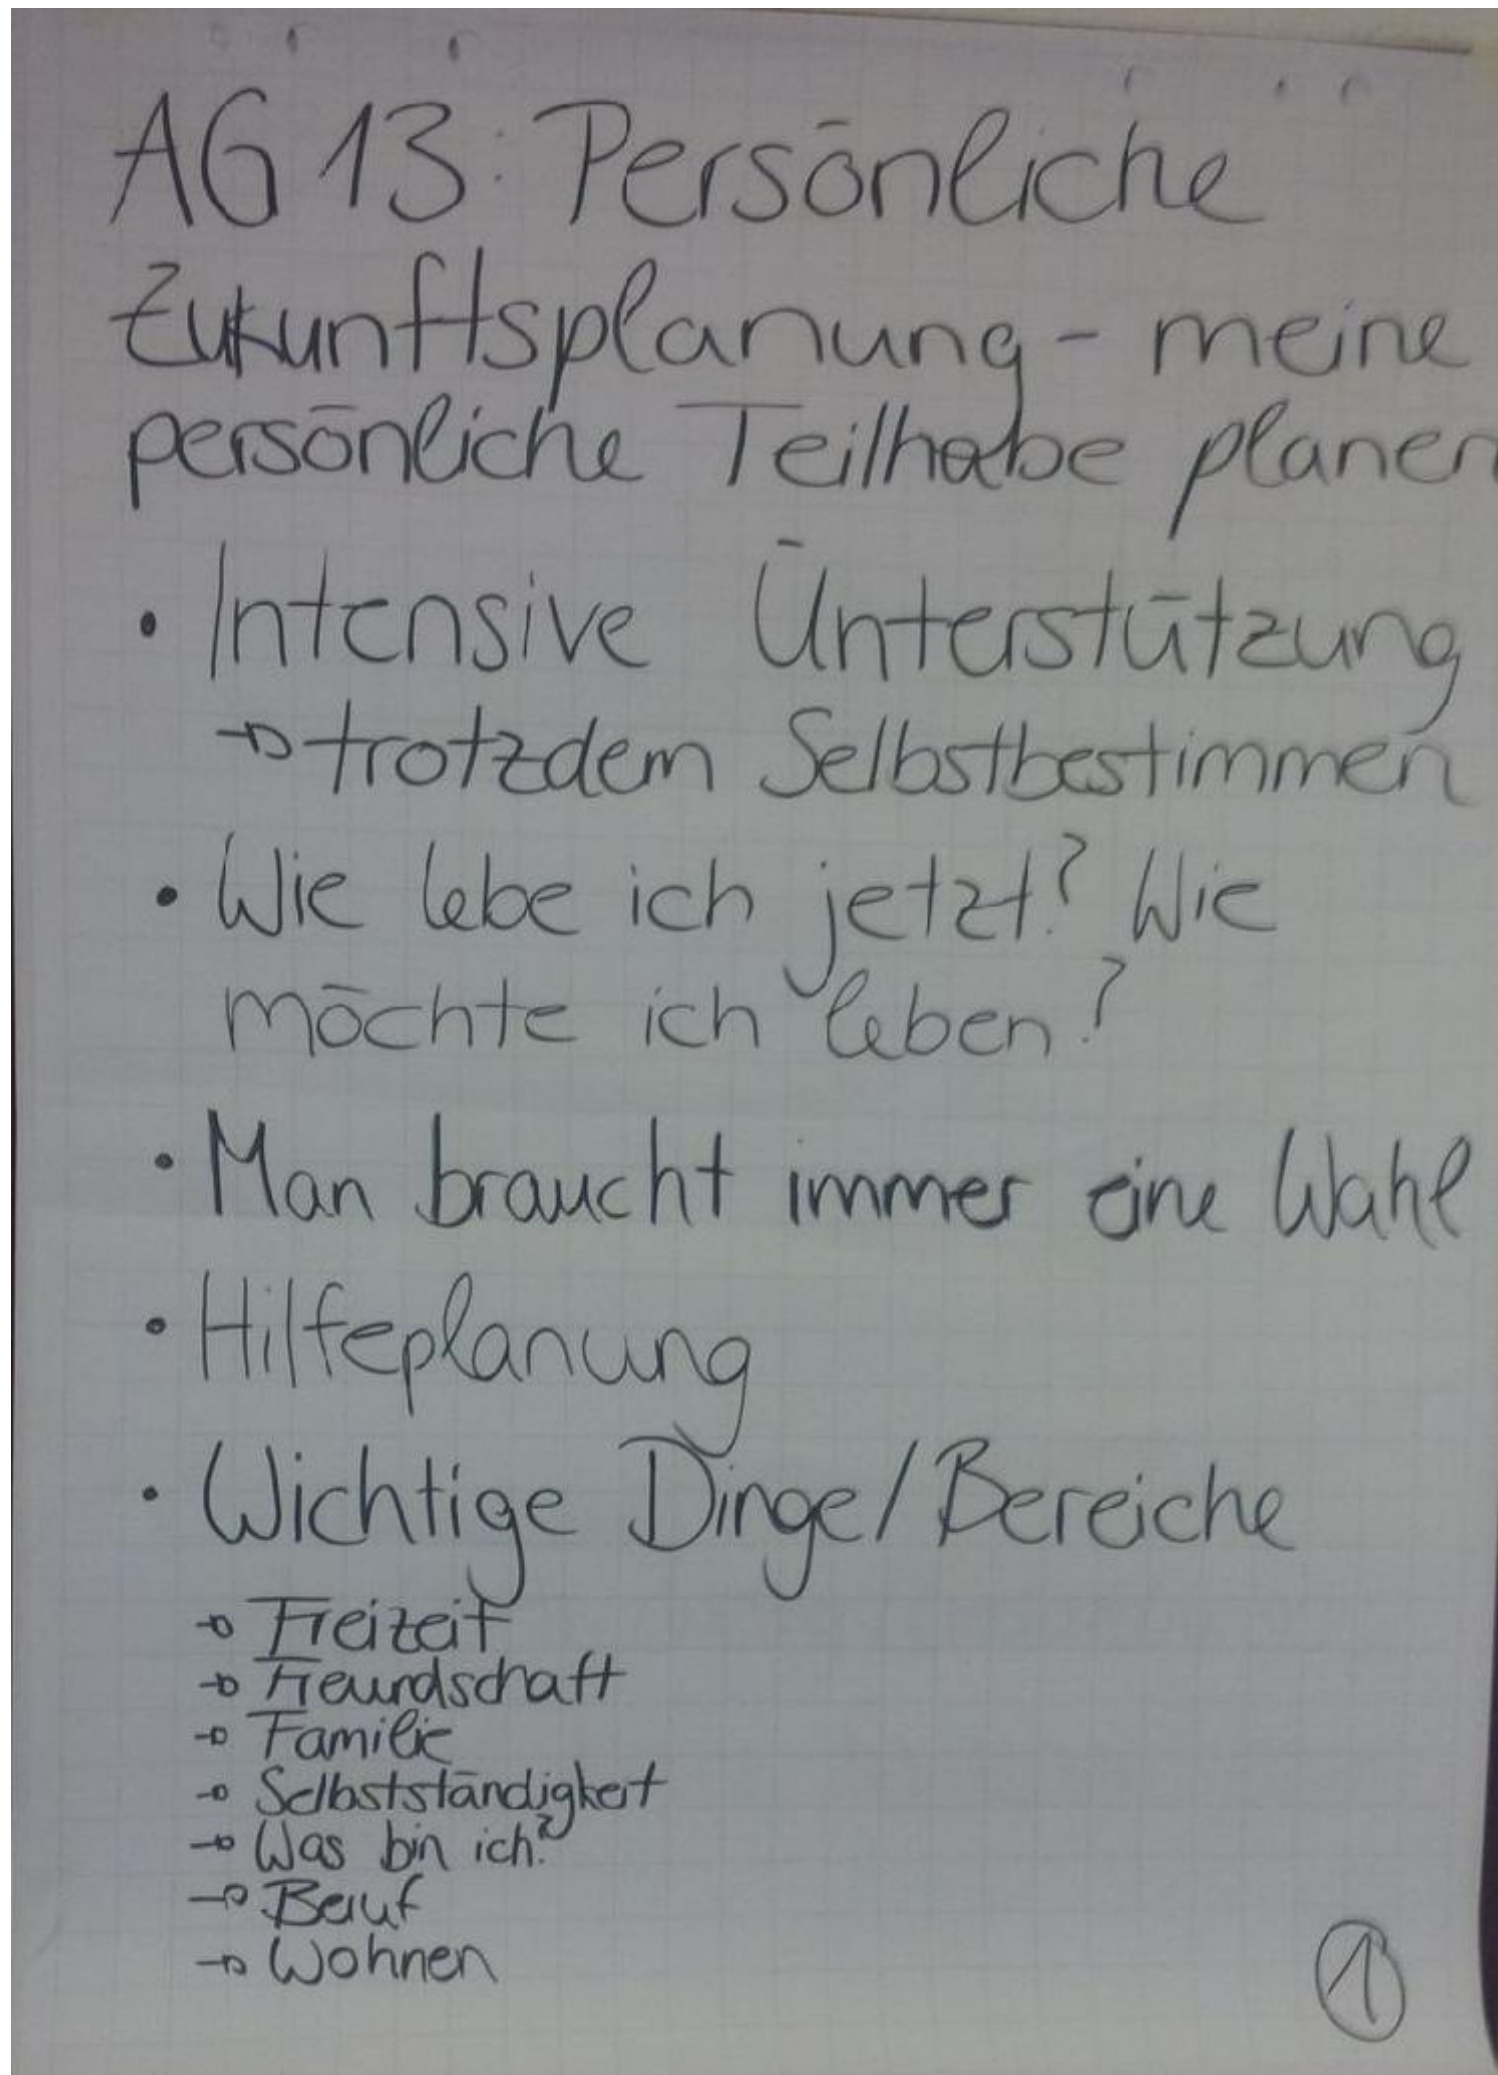 AG 13: Persönliche
Zukunftsplanung - meine
persönliche Teilhabe planen
• Intensive Unterstützung
→ trotzdem Selbstbestimmen
• Wie lebe ich jetzt? Wie
möchte ich leben?
• Man braucht immer eine Wahl
• Hilfeplanung
• Wichtige Dinge/Bereiche
→ Freizeit
→ Freundschaft
→ Familie
→ Selbstständigkeit
→ Was bin ich?
→ Beruf
→ Wohnen
1